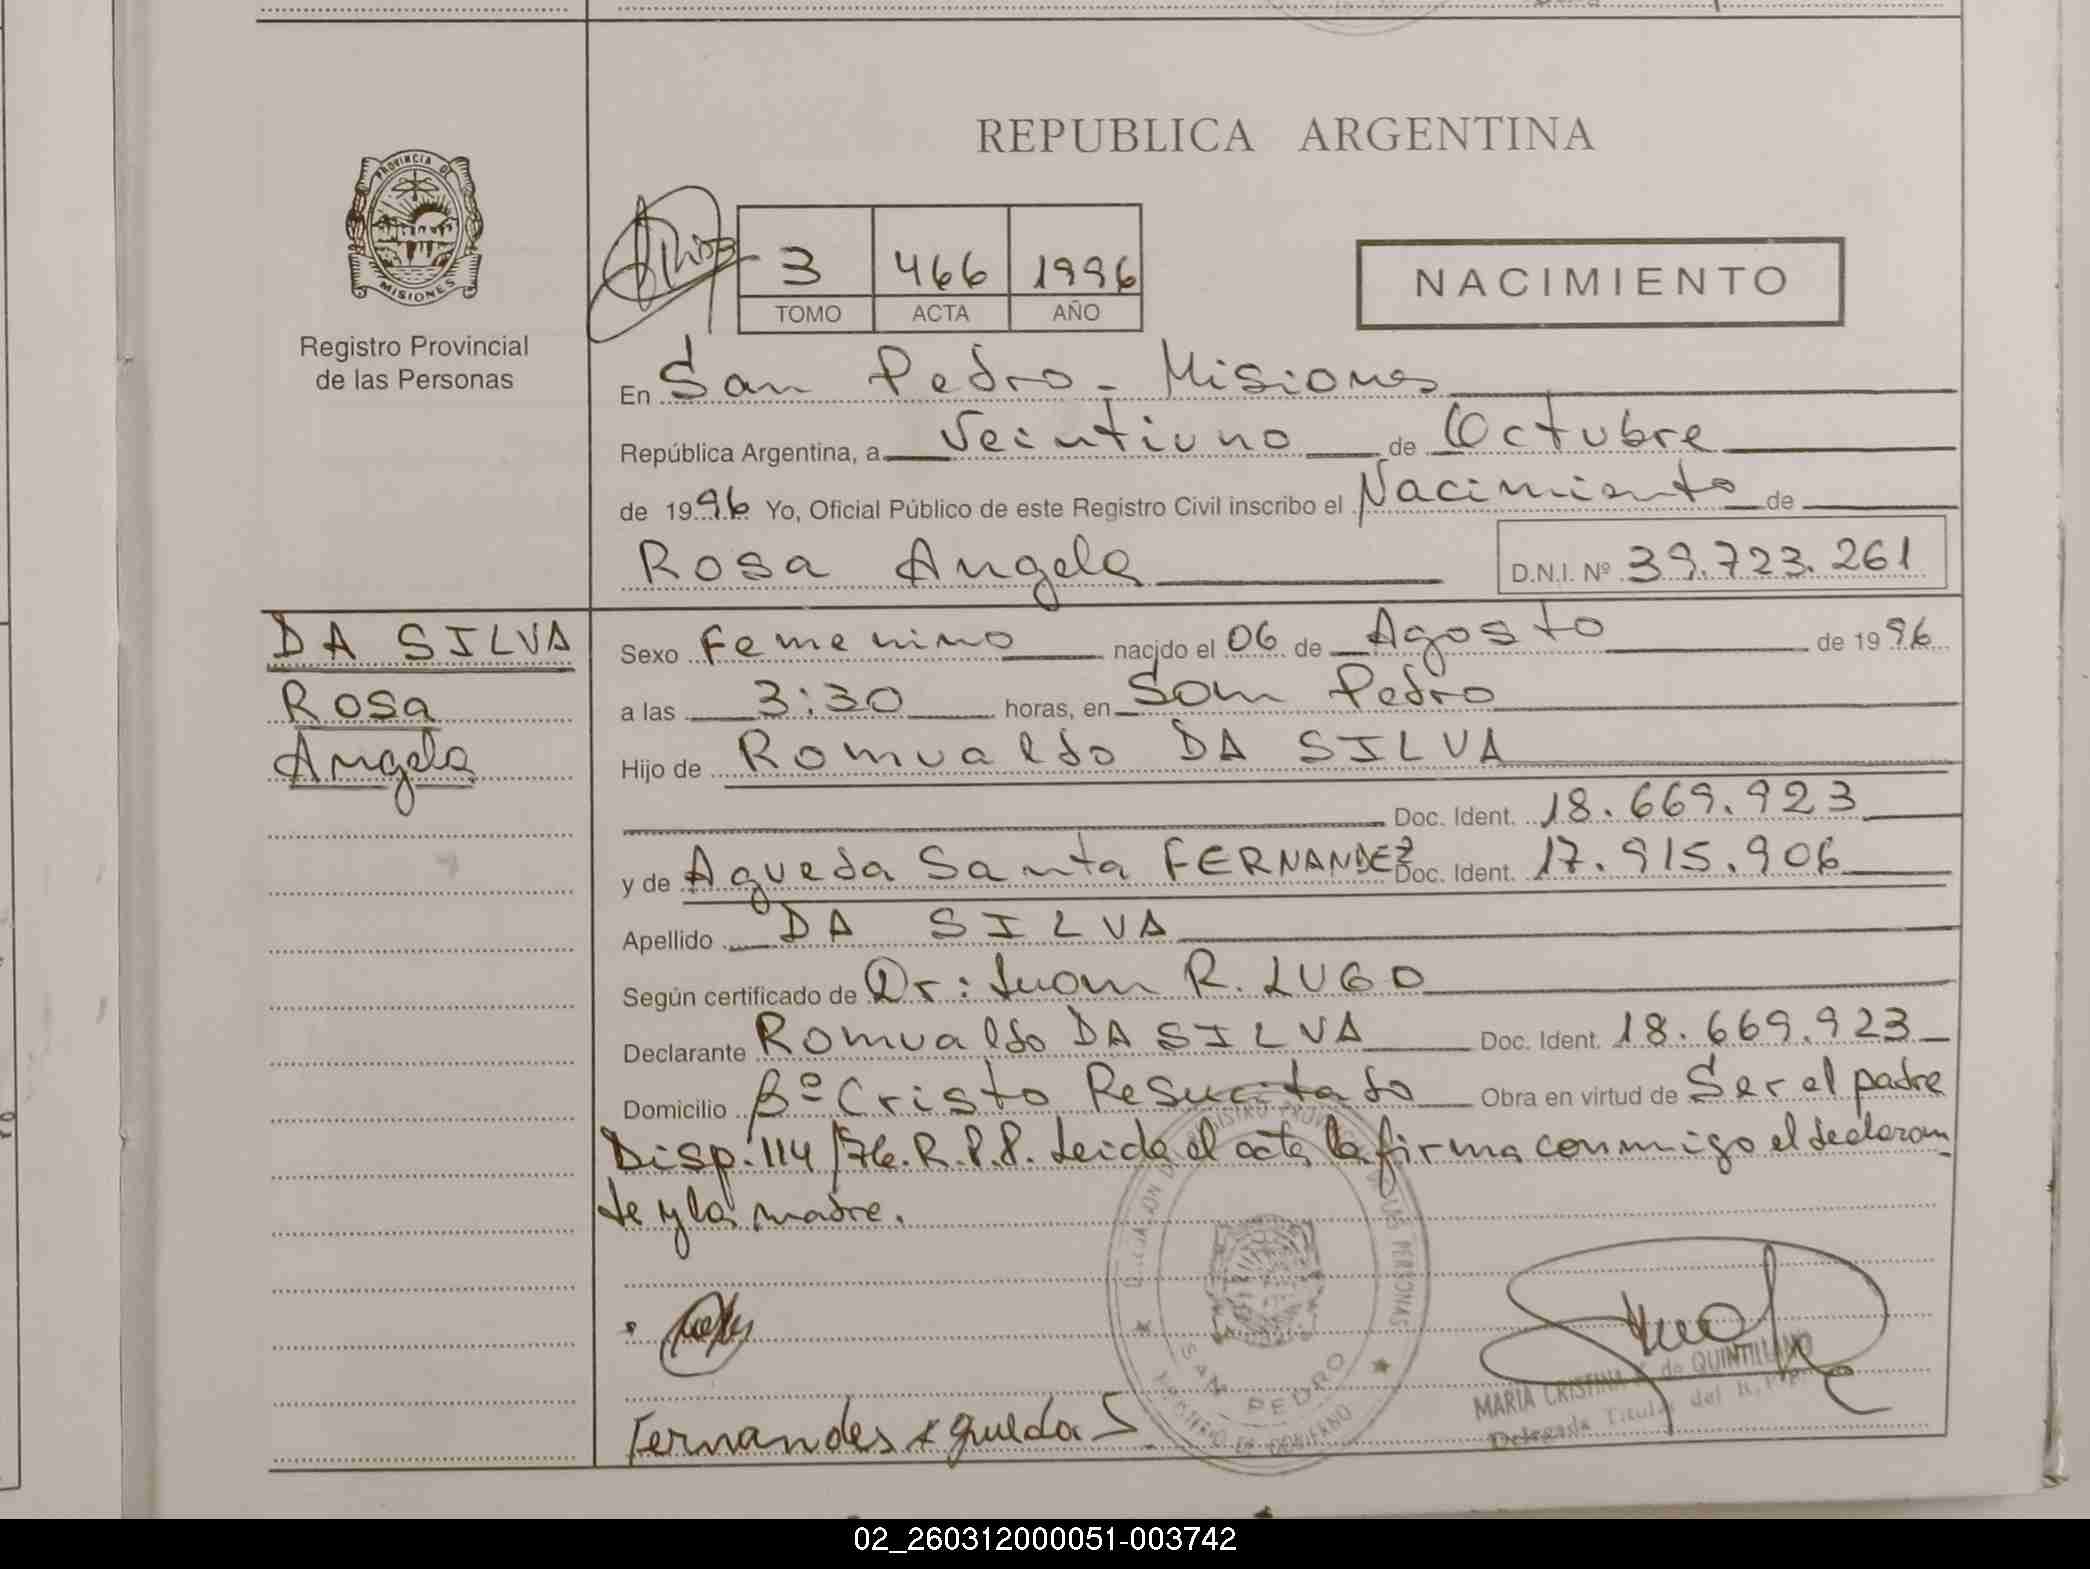 REPUBLICA ARGENTINA
PROVINCIA DE
MISIONES
Registro Provincial
de las Personas
3 466 1996
TOMO ACTA AÑO
NACIMIENTO
En San Pedro - Misiones
República Argentina, a Veintiuno de Octubre
de 1996 Yo, Oficial Público de este Registro Civil inscribo el Nacimiento de
Rosa Angela D.N.I. Nº 39.723.261
DA SILVA
Rosa
Angela
Sexo Femenino nacido el 06 de Agosto de 1996
a las 3:30 horas, en San Pedro
Hijo de Romualdo DA SILVA
Doc. Ident. 18.669.923
y de Agueda Santa FERNANDEZ Doc. Ident. 17.915.906
Apellido DA SILVA
Según certificado de Dr: Juan R. LUGO
Declarante Romualdo DA SILVA Doc. Ident. 18.669.923
Domicilio Bº Cristo Resucitado Obra en virtud de Ser el padre
Disp. 114/76. R.P.P. Leida el acta la firma conmigo el declaran
te y la madre.
SAN PEDRO
MINISTERIO DE GOBIERNO
MARIA CRISTINA de QUINTILLANO
Delegada Titular del R.P.P.
Fernandes Agueda S
02_260312000051-003742